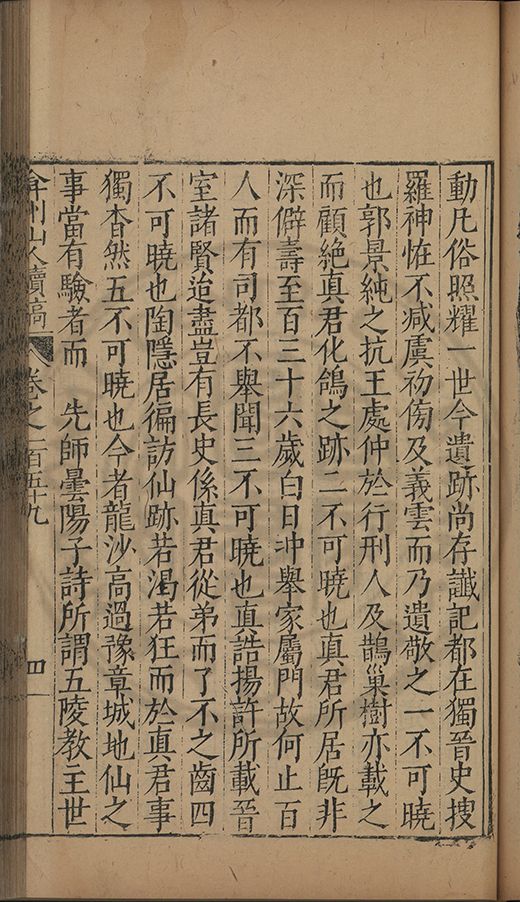 動凡俗照耀一世今遺跡尚存讖記都在獨晉史搜
羅神恠不减虞初傍及義雲而乃遺敬之一不可曉
也郭景純之抗王處仲於行刑人及鵲巢樹亦載之
而顧絶真君化鴿之跡二不可曉也真君所居旣非
深僻壽至百三十六歲白日冲舉家屬門故何止百
人而有司都不舉聞三不可曉也真誥揚許所載晉
室諸賢迨盡豈有長史係真君從弟而了不之齒四
不可曉也陶隱居徧訪仙跡若渴若狂而於真君事
獨杳然五不可曉也今者龍沙高過豫章城地仙之
事當有驗者而 先師曇陽子詩所謂五陵教主世
弇州山人續稿 卷之一百五十九 四